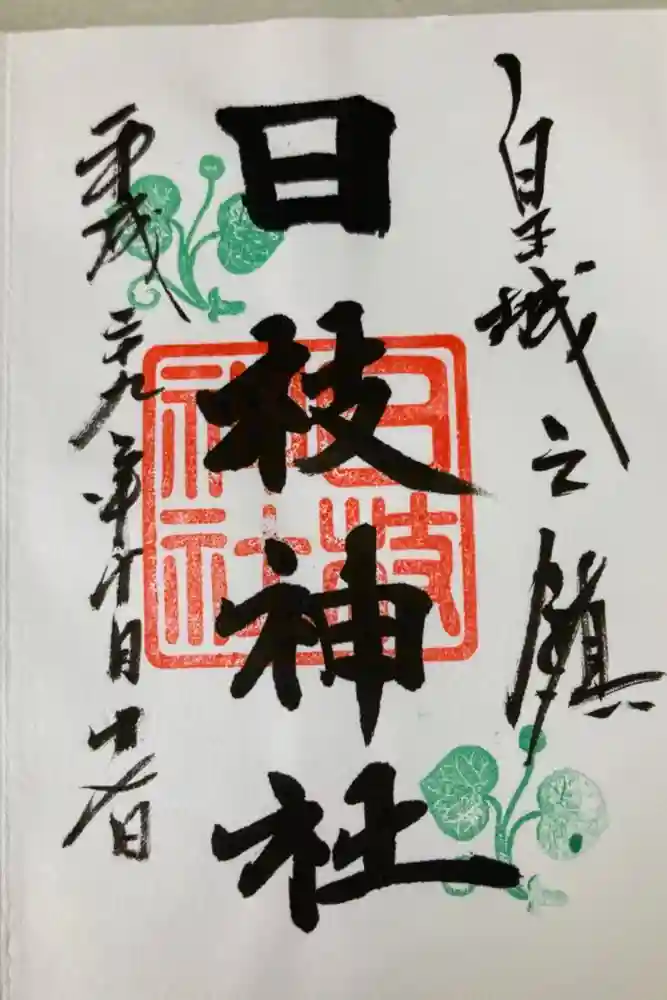 皇城之鎮
日枝神社
日枝
神社
平成二十九年十月十日